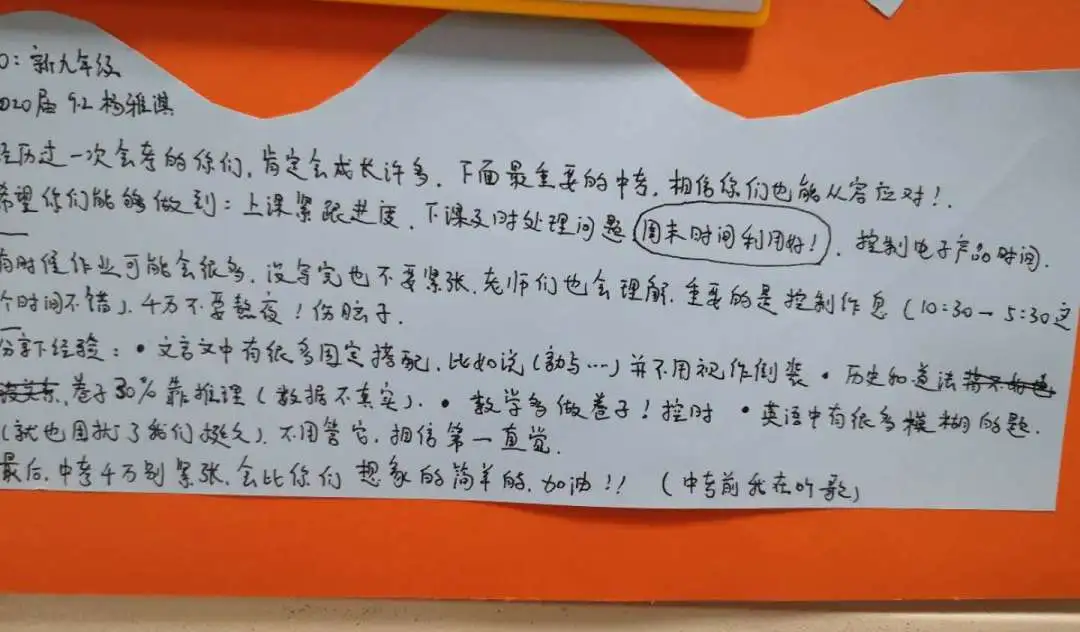 O：新九年级
020届 9.2 杨雅淇
经历过一次会考的你们，肯定会成长许多．下面最重要的中考，相信你们也能从容应对！．
希望你们能够做到：上课紧跟进度．下课及时处理问题 周末时间利用好！．控制电子产品时间．
有时候作业可能会很多．没写完也不要紧张．老师们也会理解．重要的是控制作息（10:30－5:30这
个时间不错）．千万不要熬夜！伤脑子．
分享下经验：•文言文中有很多固定搭配．比如说（ 与…）并不用视作倒装 •历史和道法
卷子30%靠推理（数据不真实）．•数学多做卷子！控时 •英语中有很多模糊的题．
（就也困扰了我们挺久）．不用管它．相信第一直觉．
最后．中考千万别紧张．会比你们想象的简单的．加油！！（中考前我在听歌）